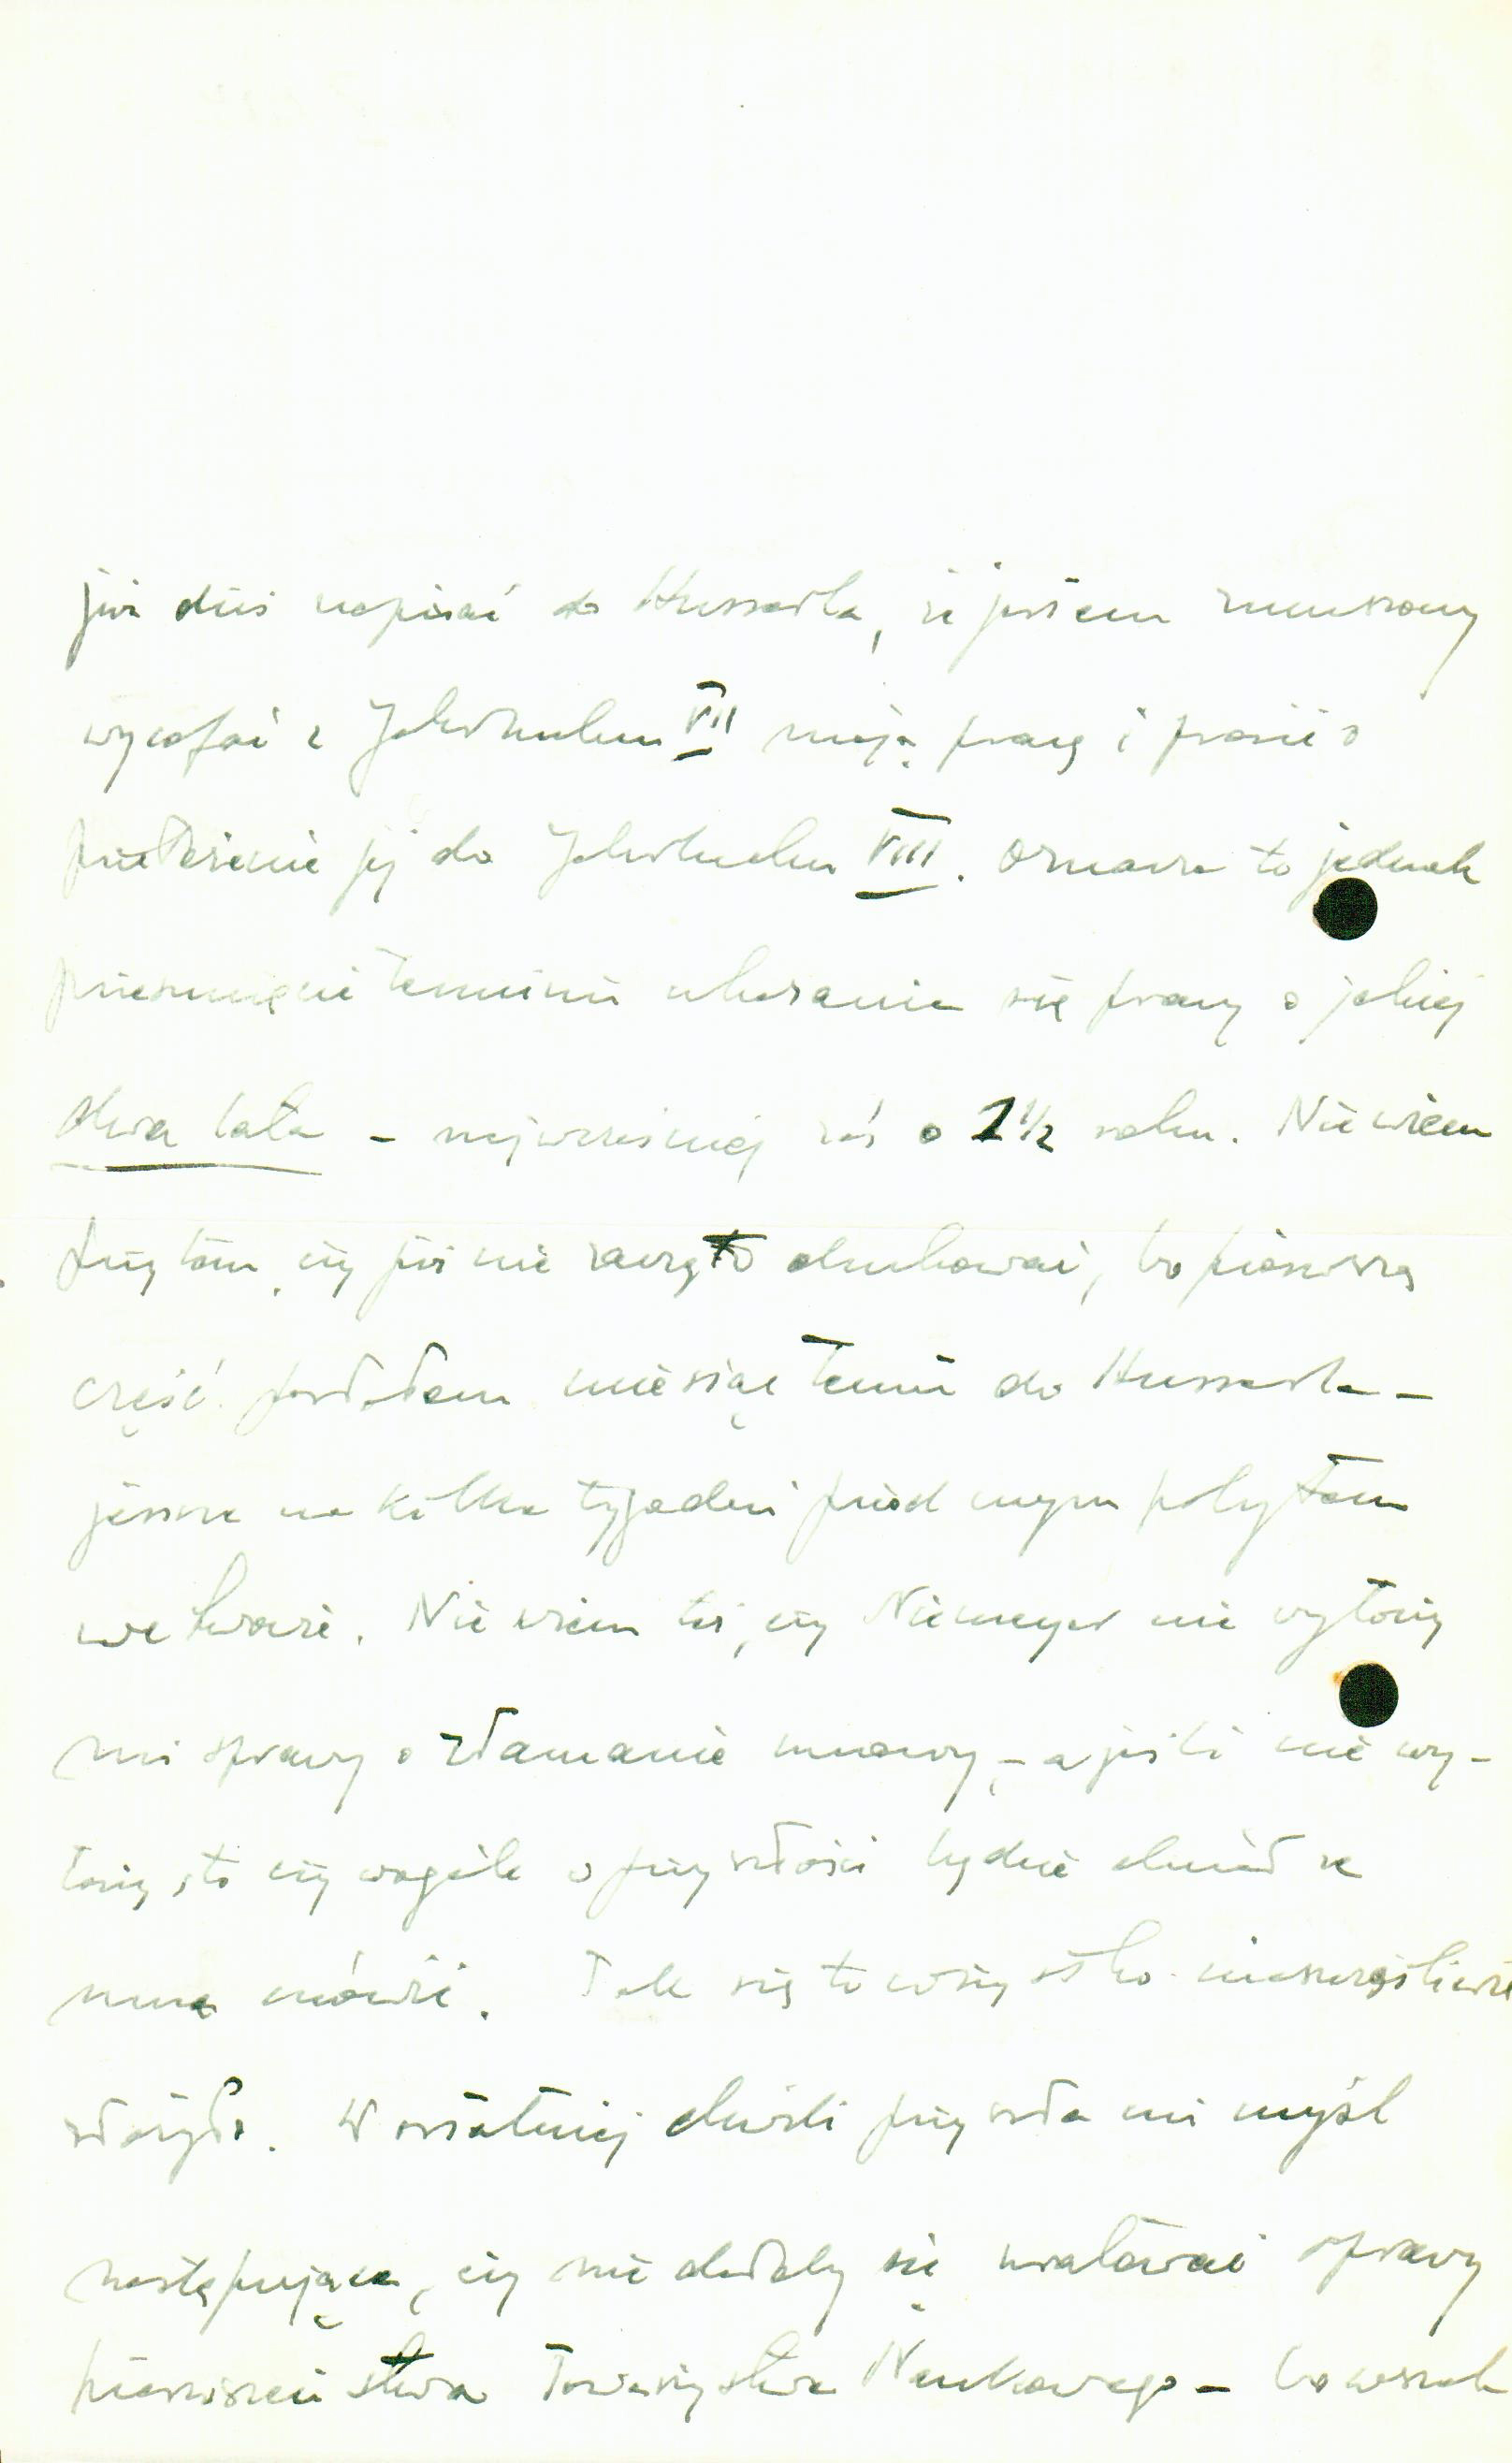 już dziś napisać do Husserla, że jestem zmuszony
wycofać z Jahrbuchu VII moją pracę i prosić o
przeniesienie jej do Jahrbuchu VIII. Oznacza to jednak
przesunięcie terminu ukazania się pracy o jakieś
dwa lata – najwcześniej zaś o 1½ roku. Nie wiem
przytem, czy już nie zaczęto drukować, bo pierwszą
część posłałem miesiąc temu do Husserla –
jeszcze na kilka tygodni przed mym pobytem
we Lwowie. Nie wiem też, czy Niemeyer nie wytoczy
mi sprawy o złamanie umowy, – a jeśli nie wy-
toczy, to czy wogóle w przyszłości będzie chciał ze
mną mówić. Tak się to wszystko nieszczęśliwie
złożyło. W ostatniej chwili przyszła mi myśl
następująca, czy nie dałoby się uratować sprawy
pierwszeństwa Towarzystwa Naukowego – bo wszak